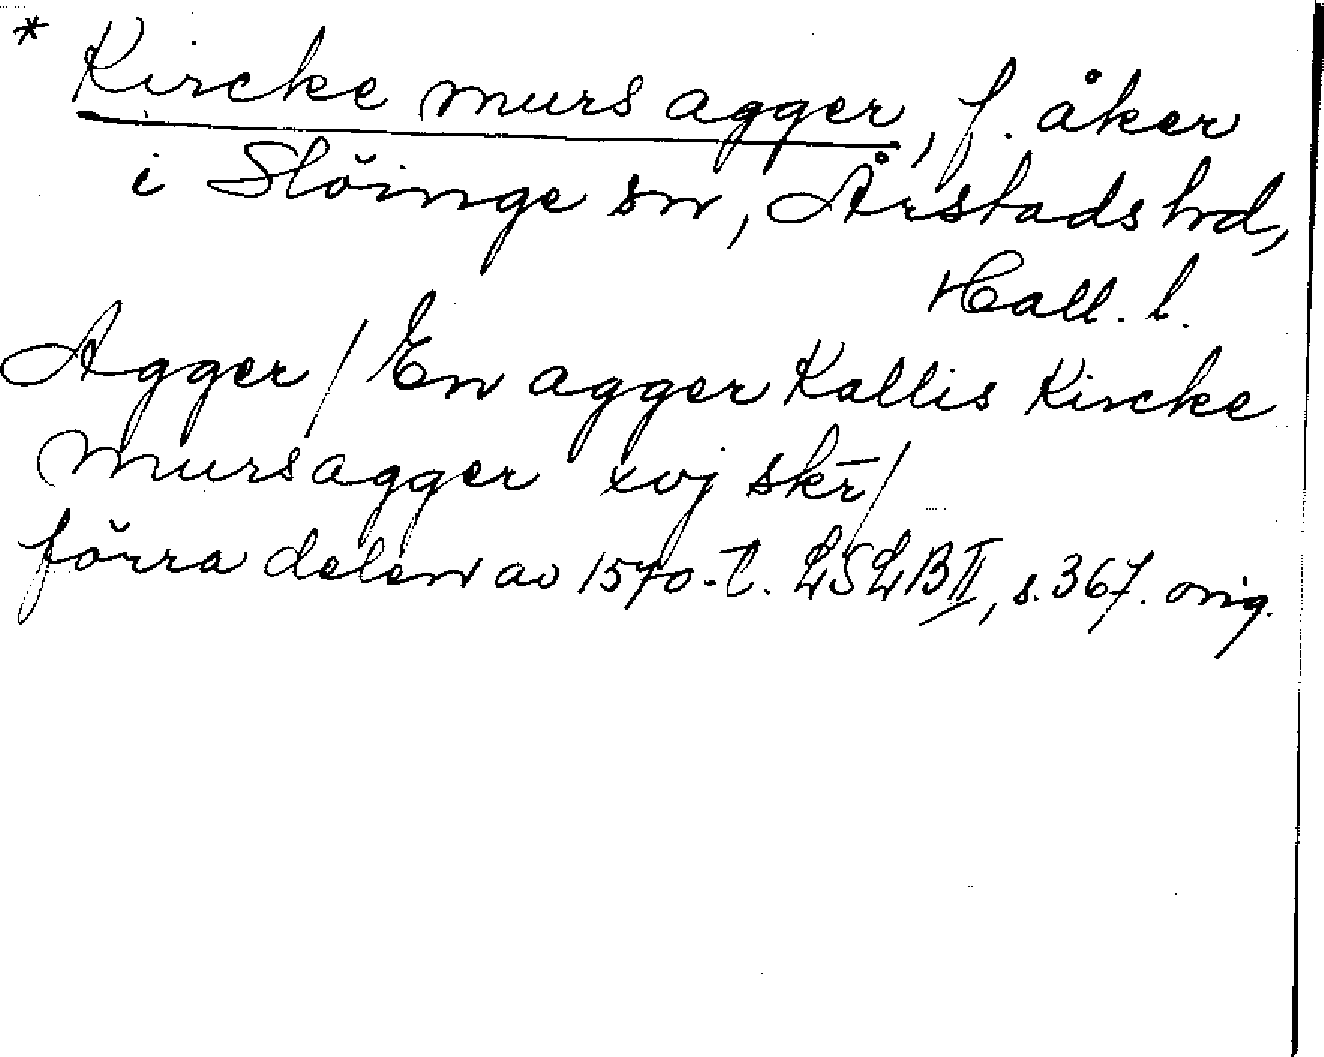 * Kircke murs agger, f. åker
i Slöinge sn, Årstads hd,
Hall. l.
Agger / En agger Kallis Kircke
mursagger xvj skr̄ /
förra delen av 1570-t. LSLB II, s. 367. orig.